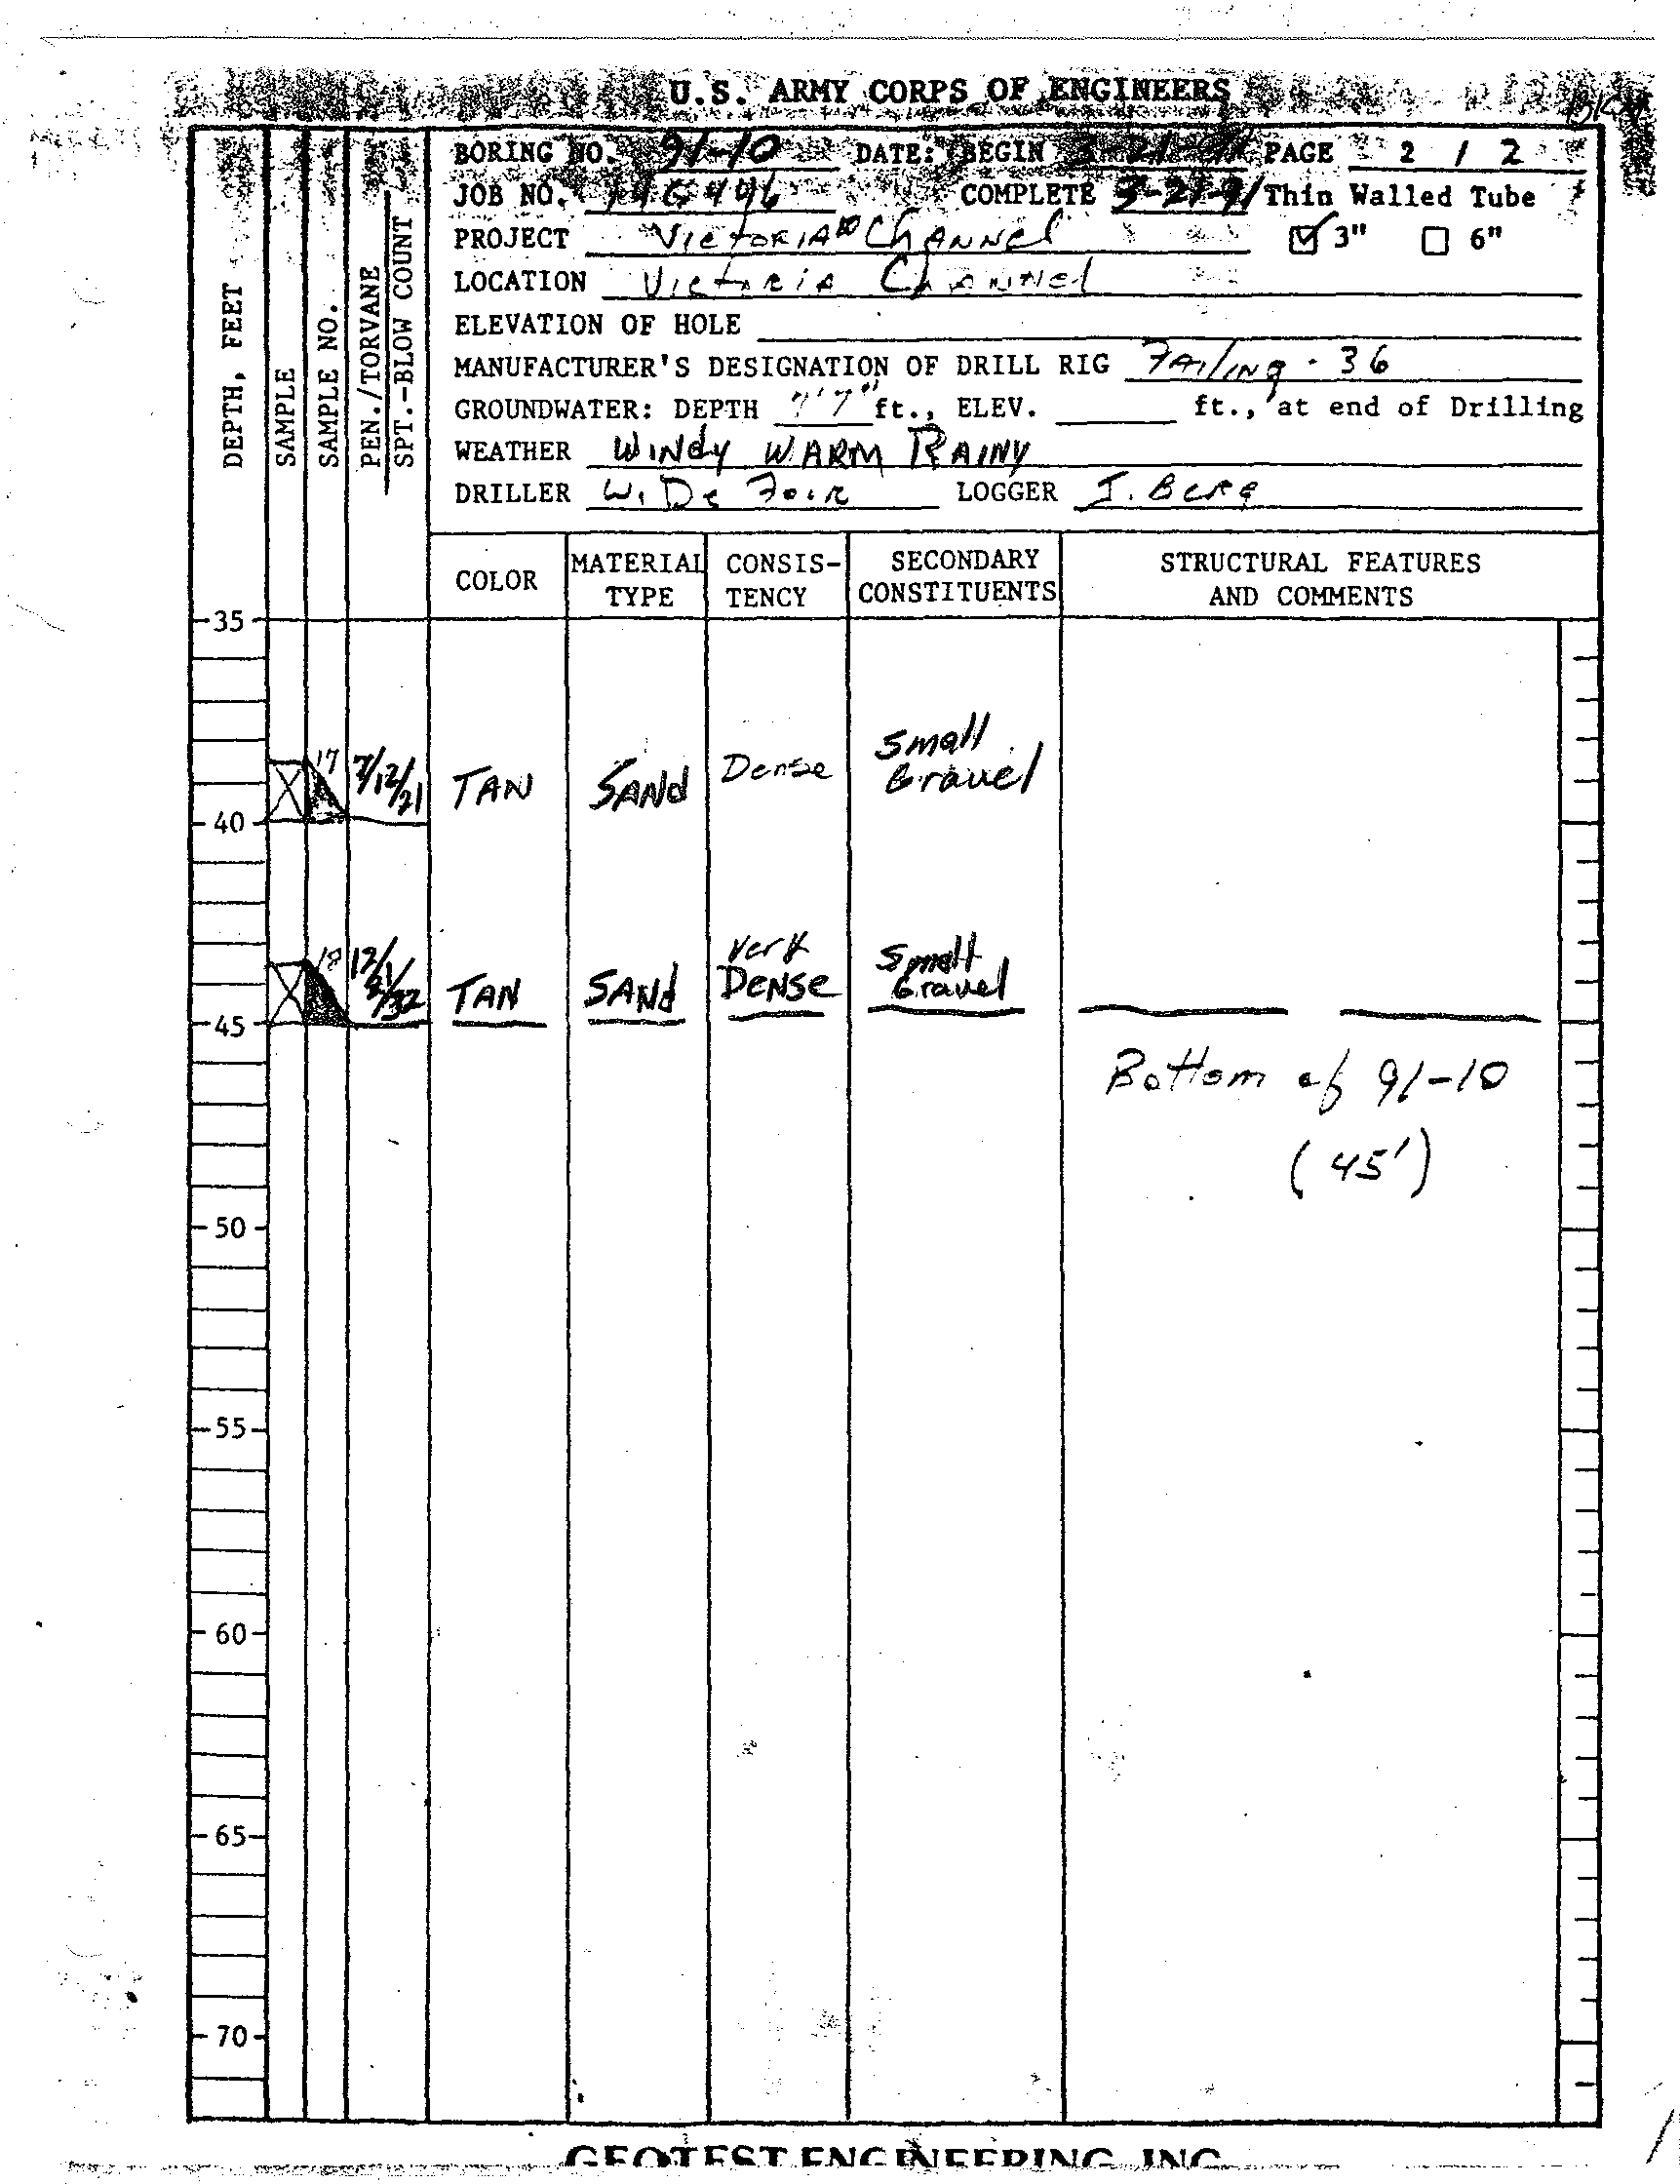 U.S. ARMY CORPS OF ENGINEERS
BORING NO. 91-10 DATE: BEGIN 3-21-91 PAGE 2 / 2
JOB NO. COMPLETE 3-21-91 Thin Walled Tube
PROJECT VICTORIA Channel 3" 6"
LOCATION Victoria Channel
ELEVATION OF HOLE
MANUFACTURER'S DESIGNATION OF DRILL RIG FAILING - 36
GROUNDWATER: DEPTH 7'7" ft., ELEV. ft., at end of Drilling
WEATHER WINDY WARM RAINY
DRILLER W. De LOGGER J. Berg
DEPTH, FEET
SAMPLE
SAMPLE NO.
PEN./TORVANE
SPT.-BLOW COUNT
COLOR MATERIAL TYPE CONSIS-TENCY SECONDARY CONSTITUENTS STRUCTURAL FEATURES AND COMMENTS
35
17 7/12/21 TAN SAND Dense Small Gravel
40
18 12/21/32 TAN SAND Very DENSE Small Gravel
45
Bottom of 91-10
(45')
50
55
60
65
70
GEOTEST ENGINEERING, INC.